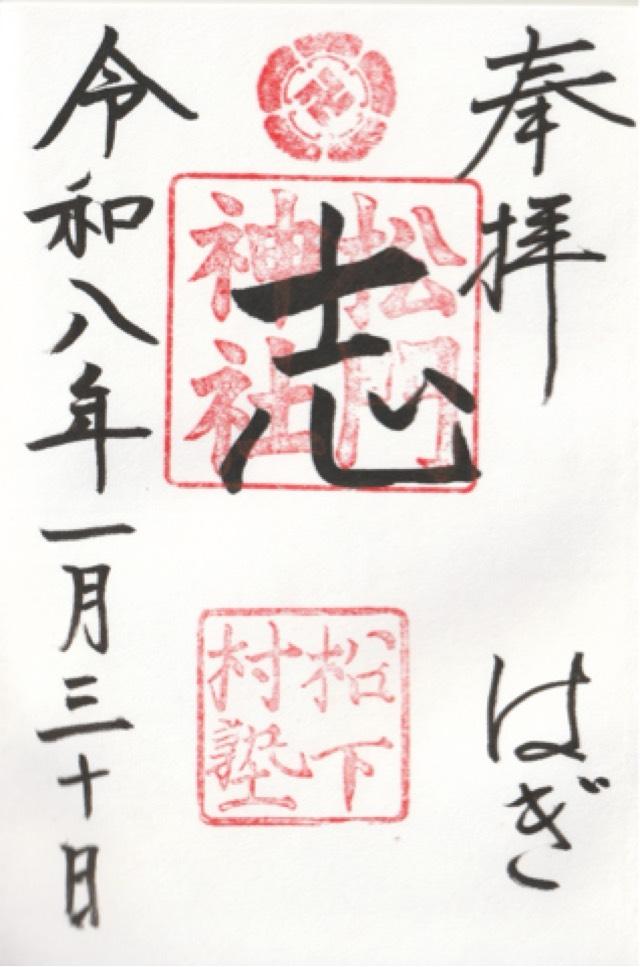 奉拝
はぎ
志
松門
神社
松下
村塾
令和八年一月三十日